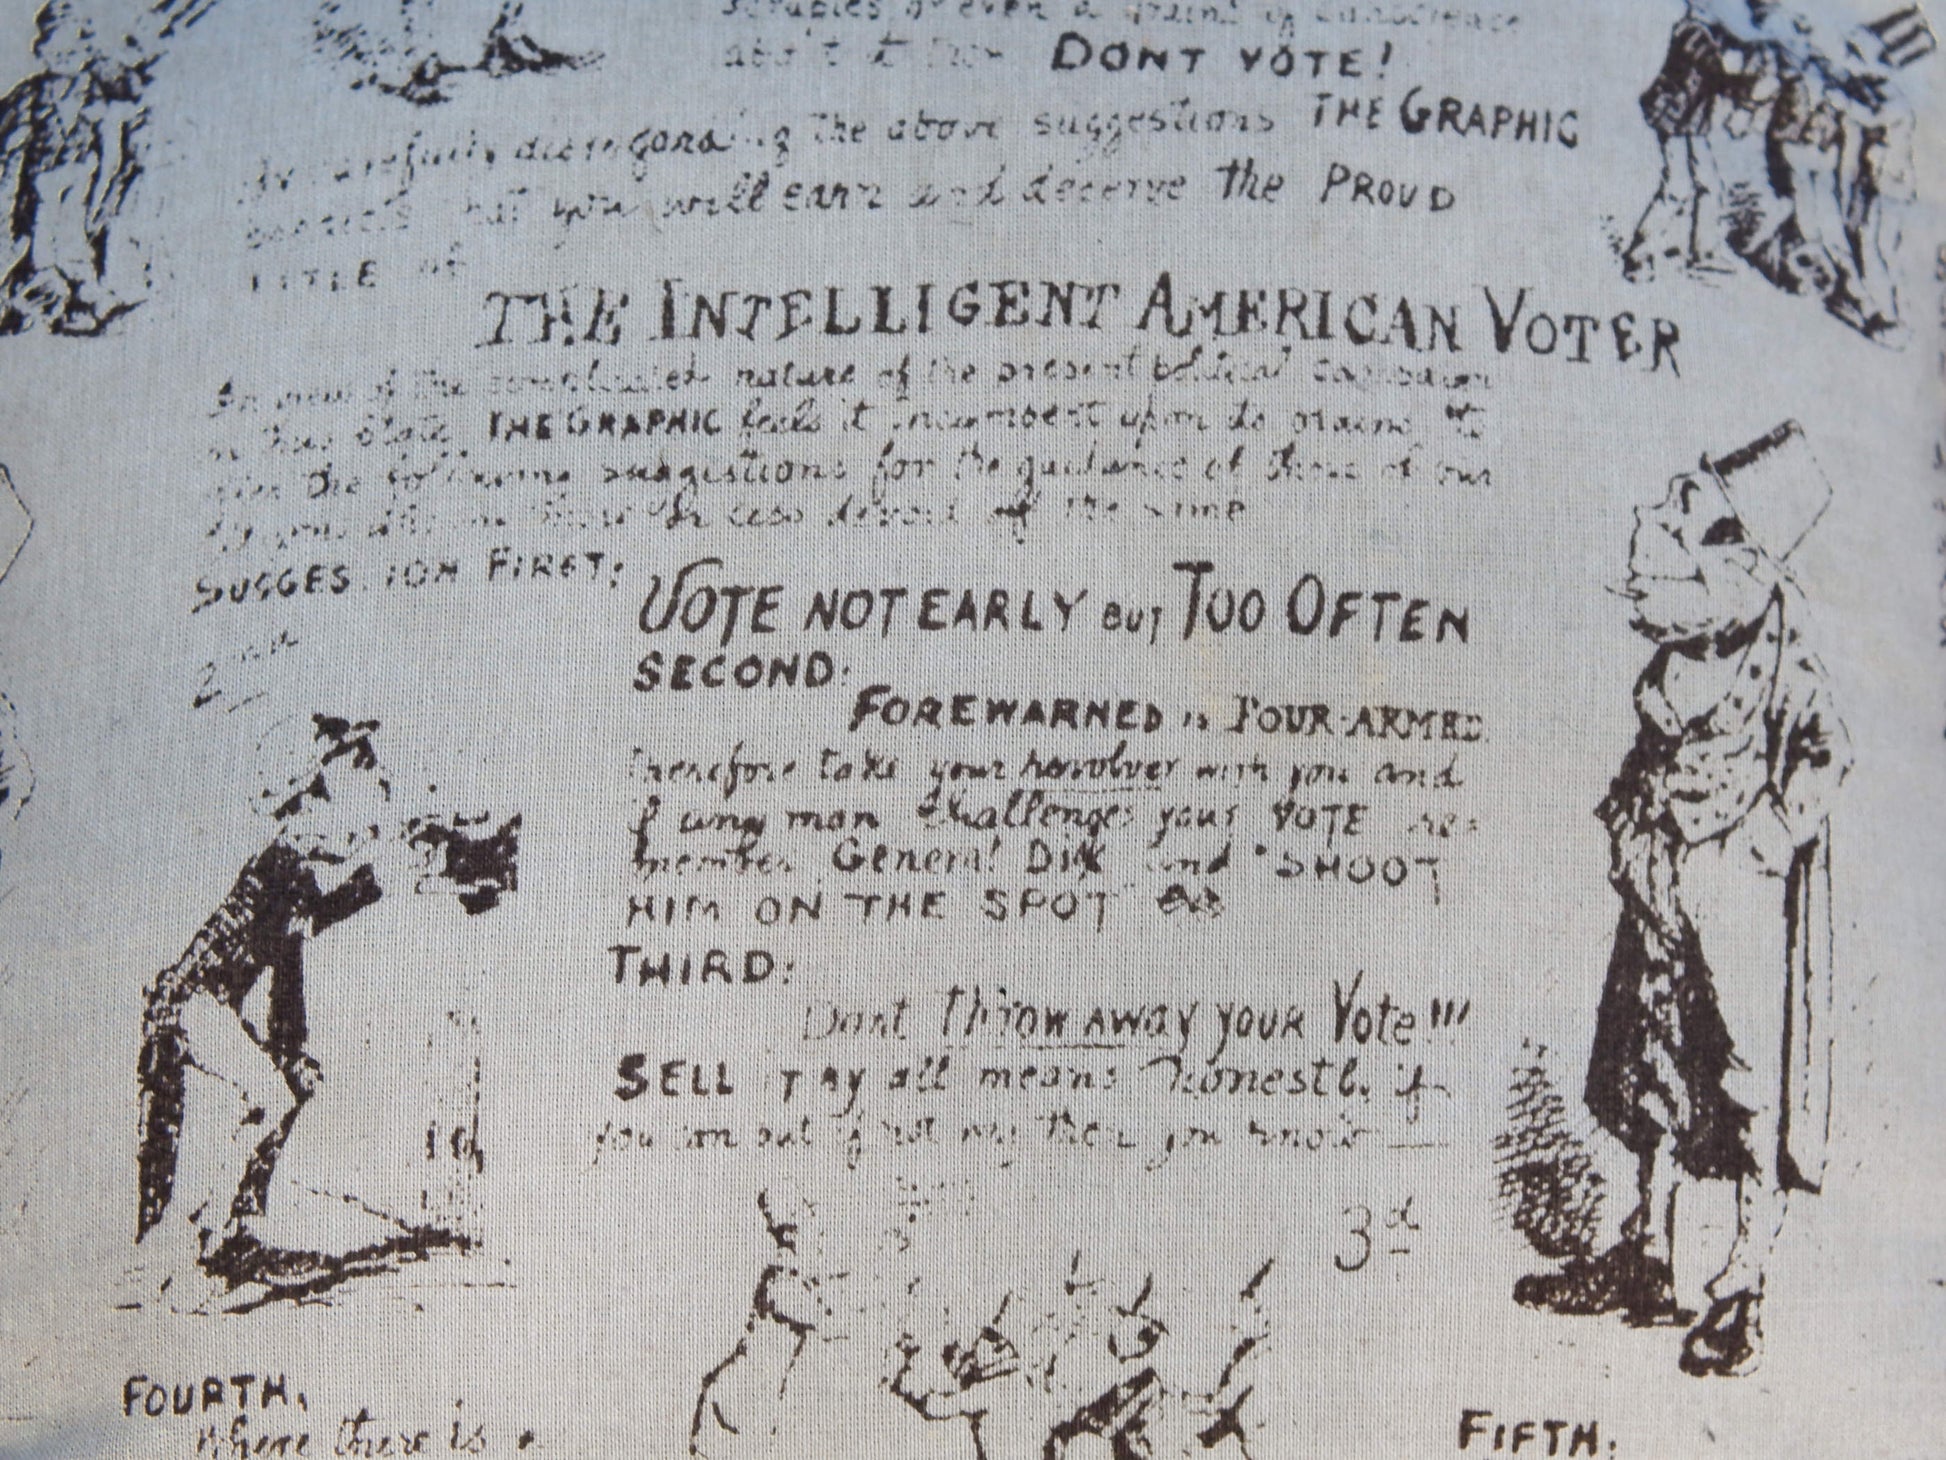 scruples or even a grain of conscience
about it then DONT VOTE!
By carefully disregarding the above suggestions THE GRAPHIC
that you will earn and deserve the PROUD
TITLE of
THE INTELLIGENT AMERICAN VOTER
In view of the complicated nature of the present political campaign
in this State THE GRAPHIC feels it incumbent upon its to
give the following suggestions for the guidance of those of our
or less devoid of the same
SUGGESTION FIRST:
VOTE NOT EARLY BUT TOO OFTEN
SECOND:
2nd
FOREWARNED is FOUR-ARMED
Therefore take your revolver with you and
if any man challenges your VOTE re-
member General DIX and "SHOOT
HIM ON THE SPOT"
THIRD:
Dont throw away your Vote!!!
SELL IT by all means honestly if
you can but if not why then you know
3d
FOURTH,
Where there is a
FIFTH: